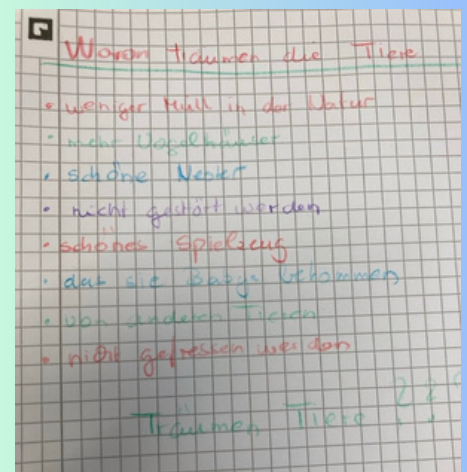 Wovon träumen die Tiere
• weniger Müll in der Natur
• mehr Vogelhäuser
• schöne Nester
• nicht gestört werden
• schönes Spielzeug
• das sie Babys bekommen
• von anderen Tieren
• nicht gefressen werden
Träumen Tiere ???